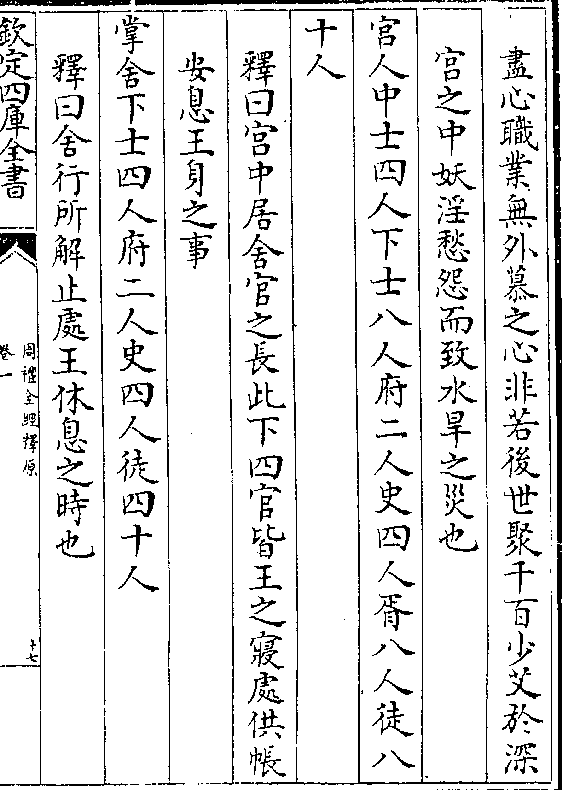 盡心職業無外慕之心非若後世聚千百少艾於深
宫之中妖淫愁怨而致水旱之災也
宫人中士四人下士八人府二人史四人胥八人徒八
十人
釋曰宫中居舍官之長此下四官皆王之寢處供帳
安息王身之事
掌舍下士四人府二人史四人徒四十人
釋曰舍行所解止處王休息之時也
欽定四庫全書
周禮全經釋原
卷一
十七